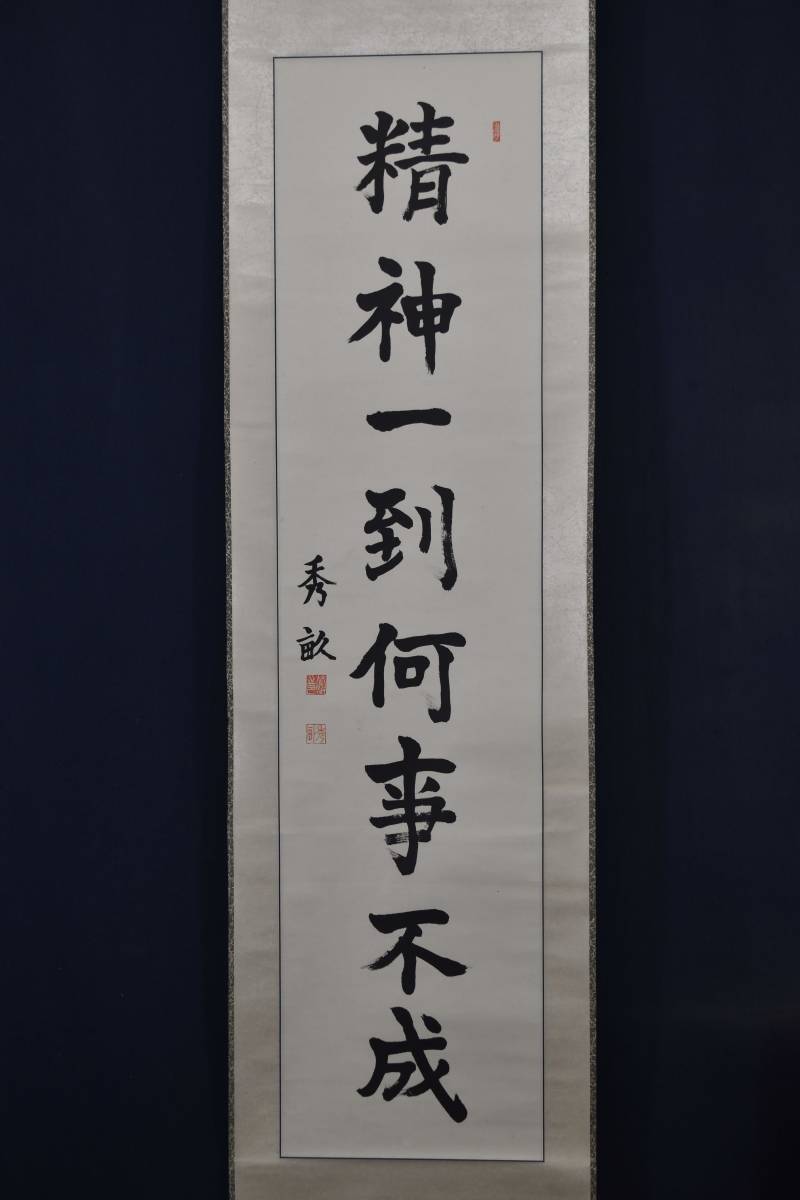 精神一到何事不成
秀畝